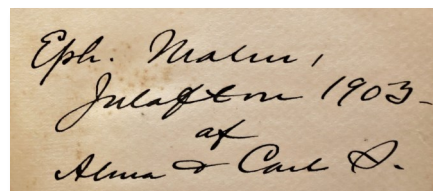 Eph. Malm,
Julafton 1903-
af
Alma & Carl S.